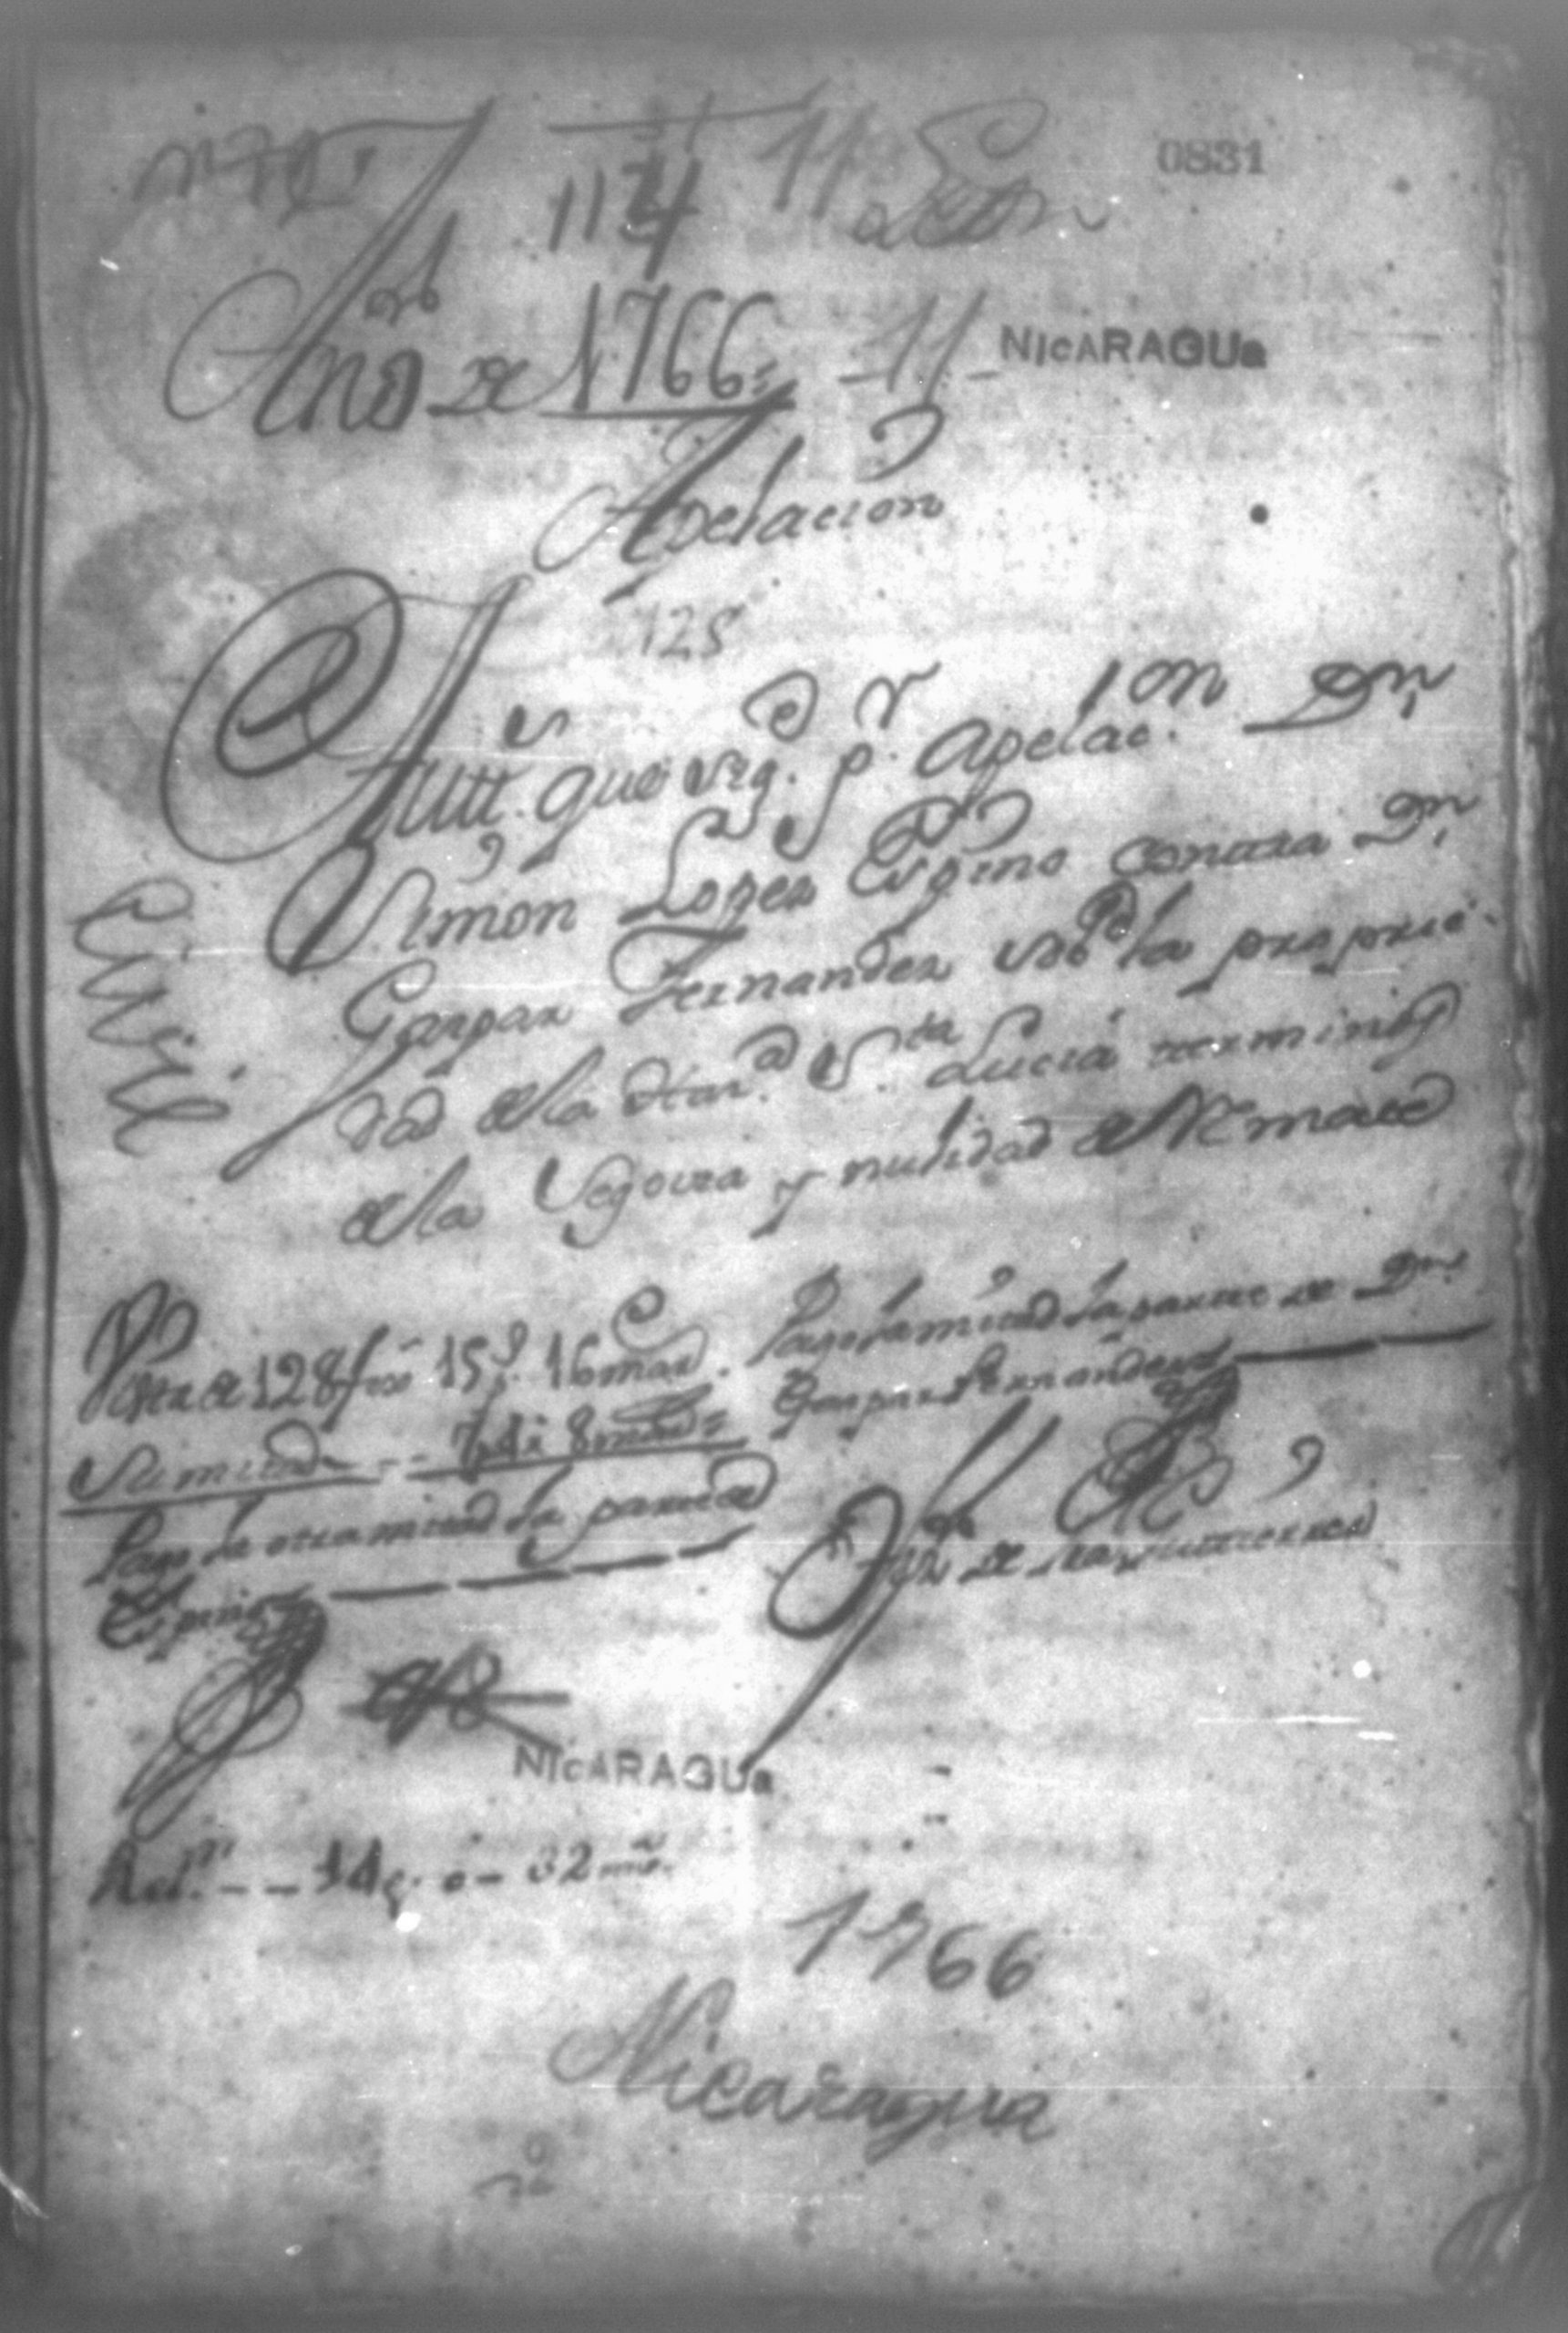 0831
114 11 Leon
Año de 1766 = - 11 - NIcARAGUa
Apelacion
125
Auttˢ. que sigᵉ. pʳ. apelacⁱᵒⁿ. Dⁿ
Simon Lopez Espino contra Dⁿ
Gaspar Fernandez sobᵉ la proprie-
dad de la Haz.ᵈᵃ Sᵗᵃ Lucia terminos
de la Segovia y nulidad de Remate
Civil
Vista de 128 foxˢ 15pˢ. 16 mara.
Su mitad -- 7p 4r 8 maraˢ =
Pago la otra mitad la parte de
Espino
Pago la mitad la parte de Dⁿ.
Gaspar Fernandez
NIcARAGUa
Relⁿ. -- 14p. o - 32 mrˢ.
1766
Nicaragua